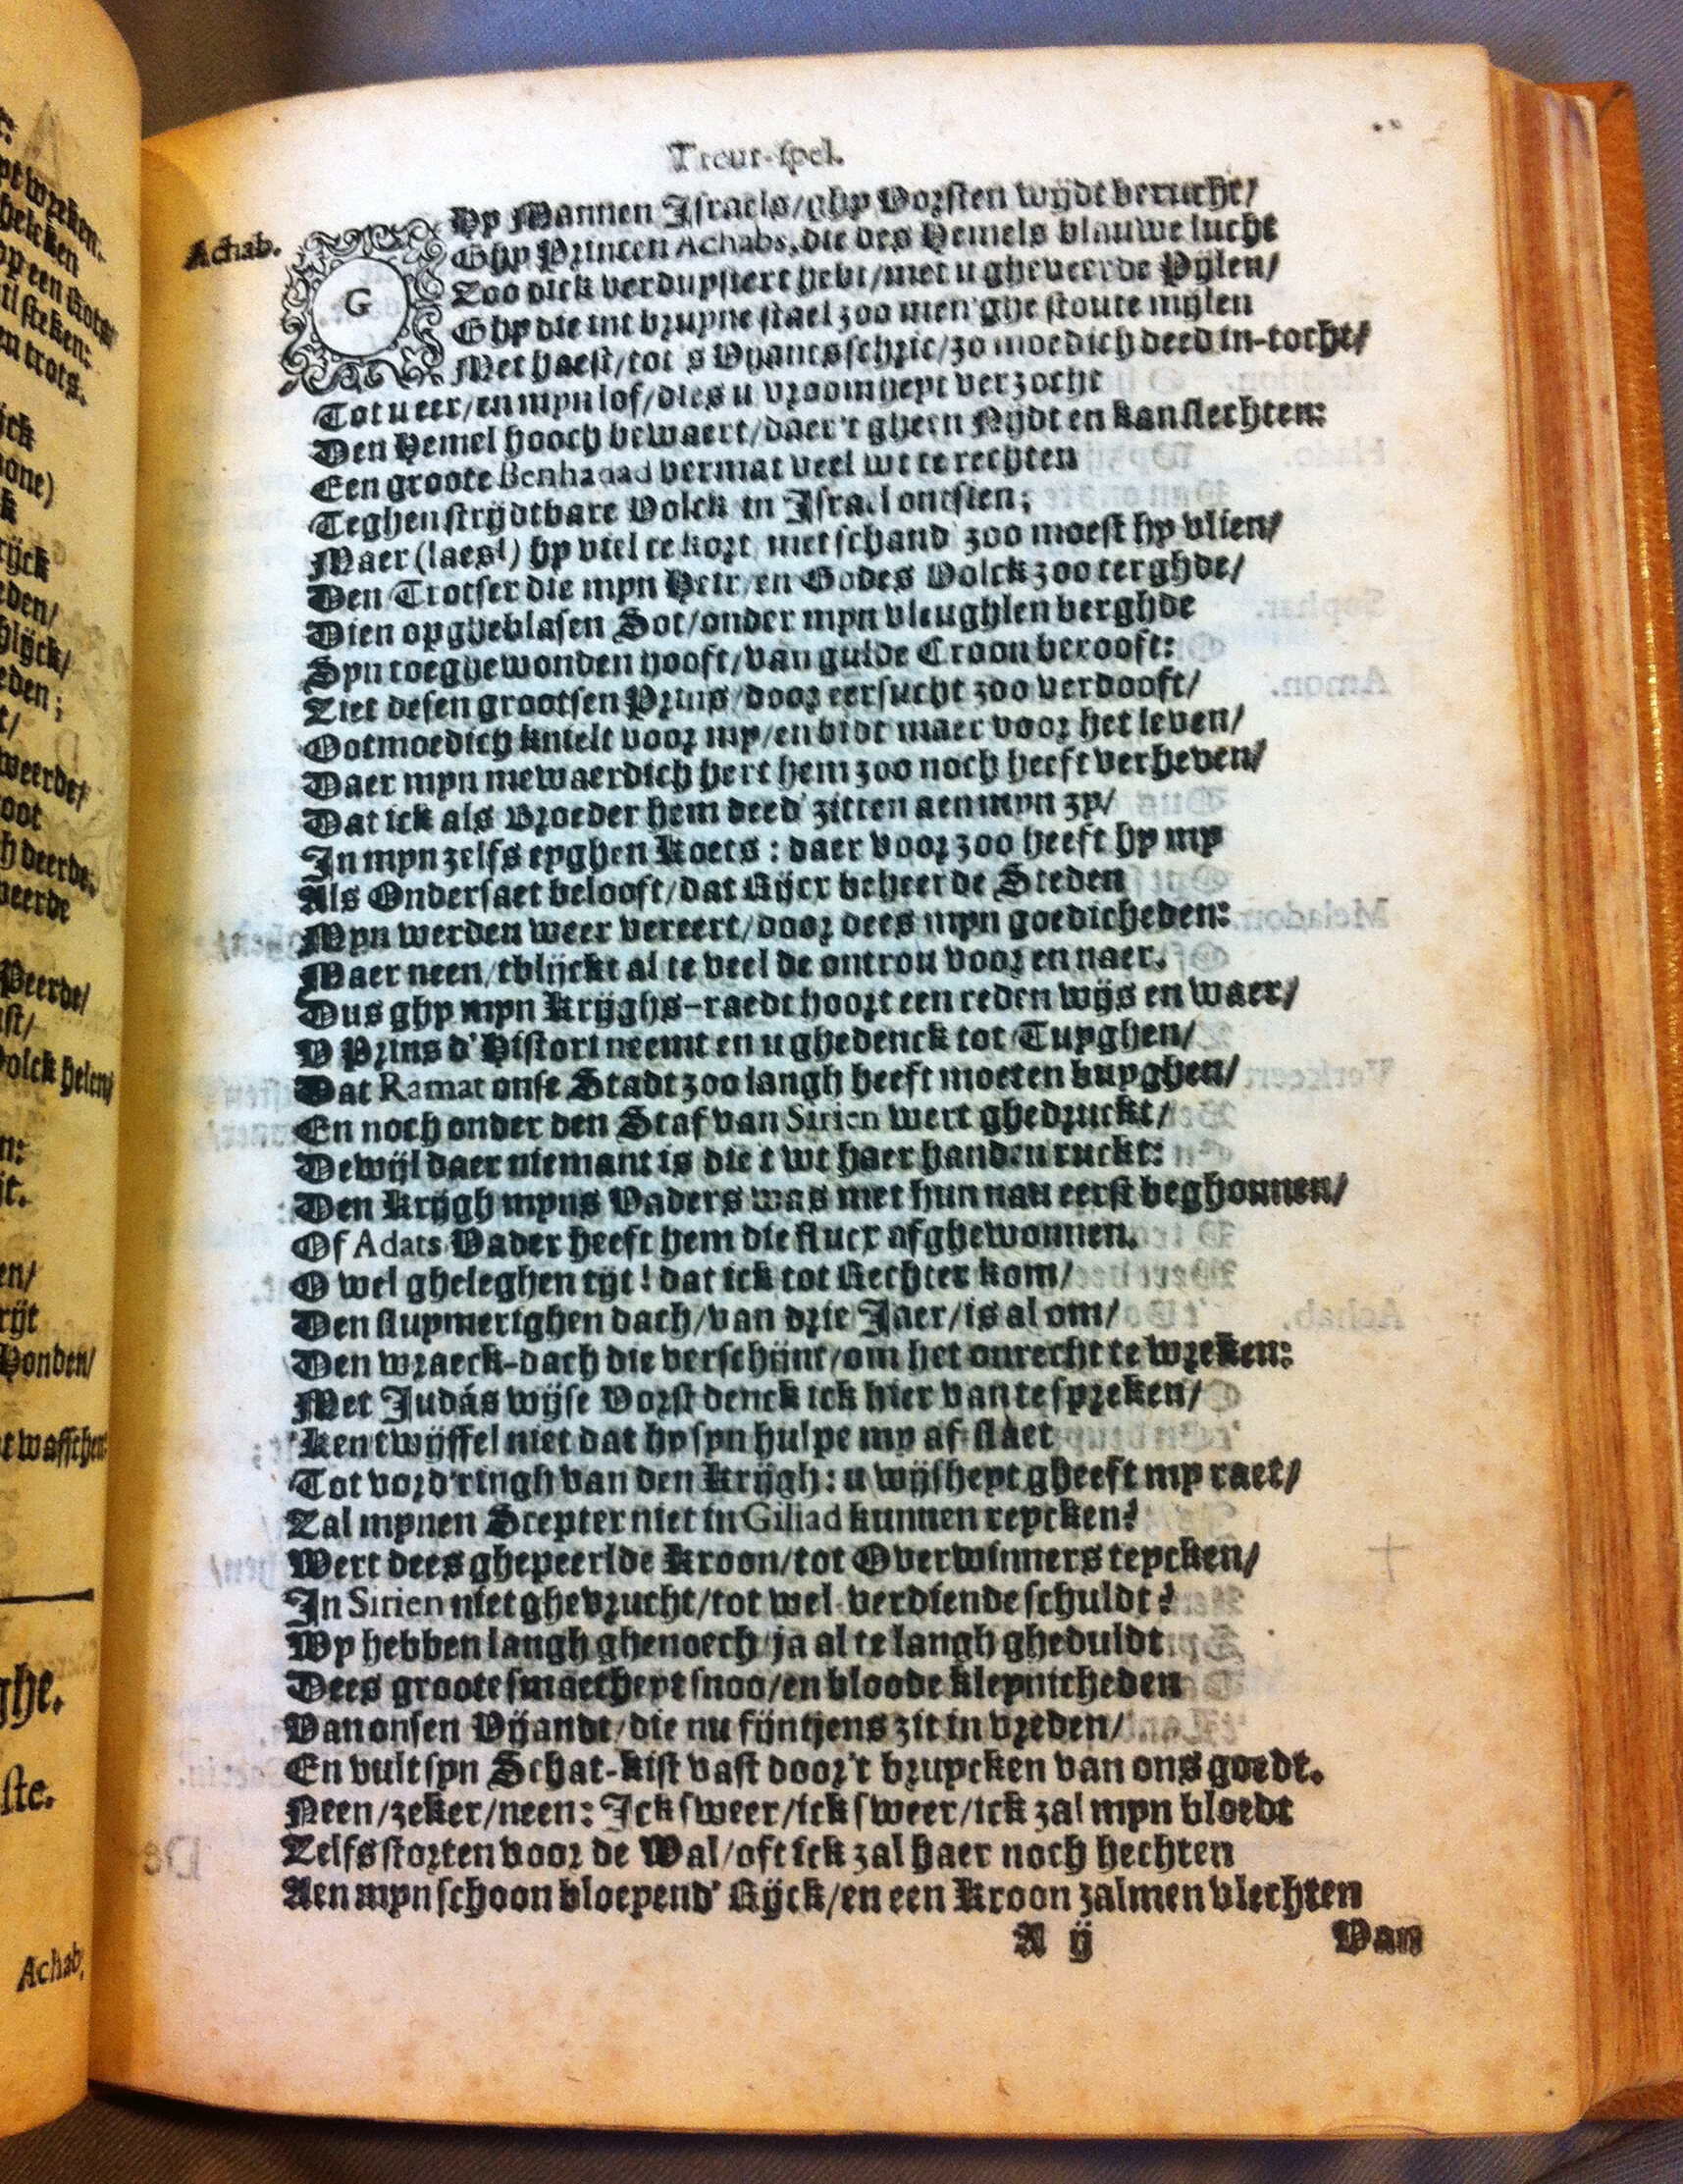 Treur-spel.
Achab.
GHy Mannen Israels/ghy Vorsten wijdt berucht/
Ghy Princen Achabs, die des Hemels blauwe lucht
Zoo dick verduystert hebt/met u gheveerde Pijlen/
Ghy die int bruyne stael zoo men'ghe stoute mijlen
Met haest/tot 's Vyants schric/zo moedich deed in-tocht/
Tot u eer/en myn lof/dies u vroomheyt verzocht
Den Hemel hooch bewaert/daer't gheen Nijdt en kan slechten:
Een groote Benhadad vermat veel wt te rechten
Teghen strijdtbare Volck in Israel ontsien;
Maer (laes!) hy viel te kort met schand' zoo moest hy vlien/
Den Trotser die myn Heir/en Godes Volck zoo terghde/
Dien opgheblasen Sot/onder myn vleughlen berghde
Syn toeghewonden hooft/van gulde Croon berooft:
Ziet desen grootsen Prins/door eersucht zoo verdooft/
Ootmoedich knielt voor my/en bidt maer voor het leven/
Daer myn mewaerdich hert hem zoo noch heeft verheven/
Dat ick als Broeder hem deed' zitten aen myn zy/
In myn zelfs eyghen Koets: daer voor zoo heeft hy my
Als Ondersaet belooft/dat Rijcx beheerde Steden
Myn werden weer vereert/door dees myn goedicheden:
Maer neen/tblijckt al te veel de ontrou voor en naer.
Dus ghy myn Krijghs-raedt hoort een reden wijs en waer/
O Prins d'Histori neemt en u ghedenck tot Tuyghen/
Dat Ramat onse Stadt zoo langh heeft moeten buyghen/
En noch onder den Staf van Sirien wert ghedruckt/
Dewijl daer niemant is die't wt haer handen ruckt:
Den Krijgh myns Vaders was met hun nau eerst beghonnen/
Of Adats Vader heeft hem die flucx afghewonnen.
O wel gheleghen tijt! dat ick tot Rechter kom/
Den sluymerighen dach/van drie Jaer/is al om/
Den wraeck-dach die verschijnt/om het onrecht te wreken:
Met Judás wijse Vorst denck ick hier van te spreken/
'Ken twijffel niet dat hy syn hulpe my af-slaet
Tot vord'ringh van den Krijgh: u wijsheyt gheeft my raet/
Zal mynen Scepter niet in Giliad kunnen reycken?
Wert dees ghepeerlde Kroon/tot Overwinners teycken/
In Sirien niet ghevrucht/tot wel-verdiende schuldt?
Wy hebben langh ghenoech/ja al te langh gheduldt
Dees groote smaetheyt snoo/en bloode kleynicheden
Van onsen Vijandt/die nu fijntjens zit in vreden/
En vult syn Schat-kist vast door't bruycken van ons goedt.
Neen/zeker/neen: Ick sweer/ick sweer/ick zal myn bloedt
Zelfs storten voor de Wal/oft ick zal haer noch hechten
Aen myn schoon bloeyend' Rijck/en een Kroon zalmen vlechten
A ij Van